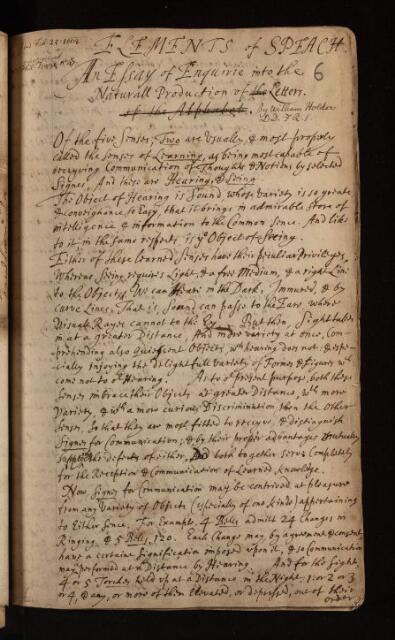 ELEMENTS of SPEACH.
An Essay of Enquirie into the
6
Naturall Production of the Letters.
of the Alphabet.
By William Holder
D.D. F.R.S.
Of the five Senses, Two are Usually, & most properly
called the Senses of Learning, as being most capable of
receyving Communication of Thoughts & Notions by selected
Signes. And these are Hearing, & Seeing.
The Object of Hearing is Sound whose variety is so greate
& conveighance so Easy, that it brings in admirable store of
intelligence & information to the Common sence. And like
to it in the same respects is ye Object of Seeing.
Either of these learned Senses have their peculiar Priviledges
Whereas Seeing requires Light, & a free Medium, & a right Line
to the Objects; We can Heare in the Dark, Immured, & by
curve Lines. That is, Sound can pass to the Eare, where
Visuall Rayes cannot to the Ey. But then, Sight takes
in at a greater Distance, And more variety at once, Com-
prehending also Quiescent Objects, wch hearing does not: & espe-
cially injoying the delightfull variety of Formes & Figures wch
come not to ye Hearing. As to ye present purpose, both these
senses imbrace their Objects at greater distance, wth more
Variety, & wth a more curious Discrimination then the other
senses, So that they are most fitted to receyve, & distinguish
Signes for Communication; & by their proper advantages mutually
supply the defects of either, both together serve Completely
for the Reception & Communication of Learned knowledge.
Now Signes for Communication may be contrived at pleasure
from any Variety of Objects (especially of one kinde) appertaining
to Either Sence. For Example, 4 Bells admitt 24 Changes in
Ringing, & 5 Bells, 120. Each Change may by agreement & consent
have a certaine Signification imposed upon it, & so Communication
may performed at a Distance by Hearing. And for the Sight,
4 or 5 Torches held up at a Distance in the Night, 1: or 2 or 3
or 4, & any, or more of them Elevated, or depressed, out of their
order,